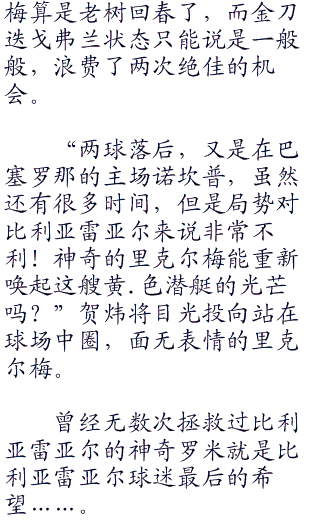 梅算是老树回春了，而金刀
迭戈弗兰状态只能说是一般
般，浪费了两次绝佳的机
会。
“两球落后，又是在巴
塞罗那的主场诺坎普，虽然
还有很多时间，但是局势对
比利亚雷亚尔来说非常不
利！神奇的里克尔梅能重新
唤起这艘黄.色潜艇的光芒
吗？”贺炜将目光投向站在
球场中圈，面无表情的里克
尔梅。
曾经无数次拯救过比利
亚雷亚尔的神奇罗米就是比
利亚雷亚尔球迷最后的希
望……。